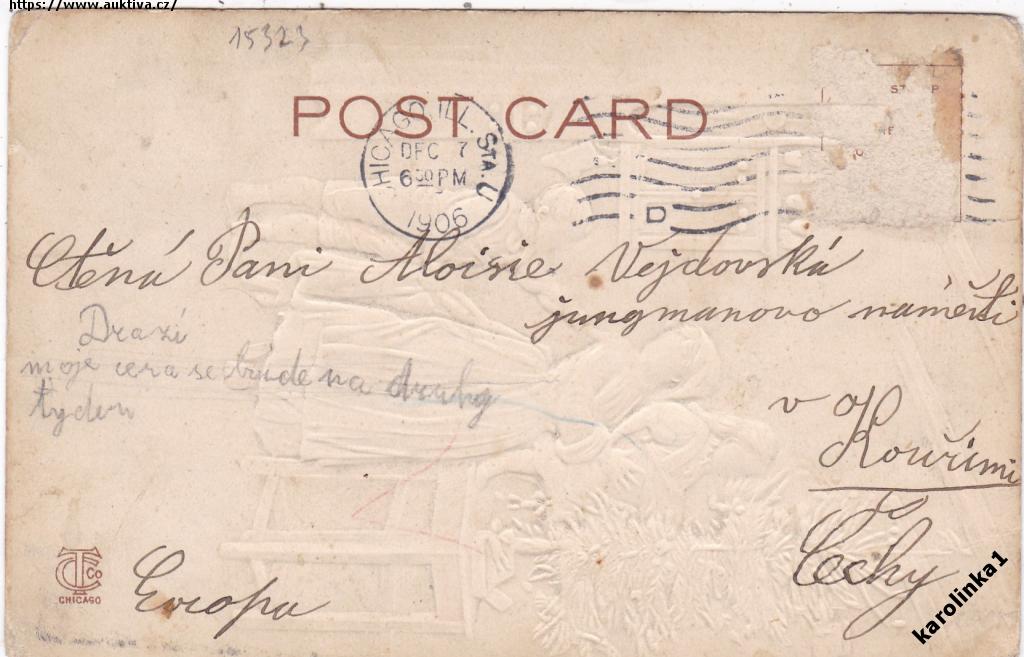 https://www.auktiva.cz/
15323
POST CARD
CHICAGO, ILL. STA. U
DEC 7
6 30 PM
1906
D
Ctěná Pani Aloisie Vejdovská
jungmanovo náměsti
Drazí
moje cera se bude na druhy
tyden
v
Kouřimi
Čechy
Evropa
TC Co
CHICAGO
karolinka1